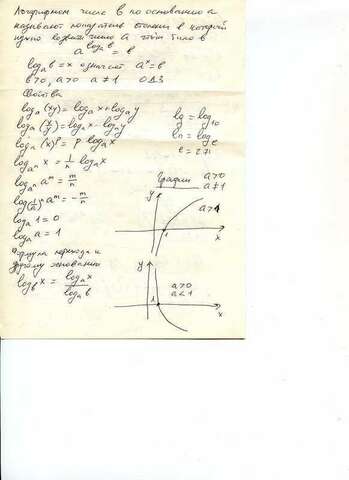 Логарифмом числа b по основанию a
называют показатель степени в которой
нужно возвести число a чтоб было b
a^{log_a b} = b
log_a b = x означает a^x = b
b>0, a>0 a≠1 ОДЗ
Свойства
log_a (xy) = log_a x + log_a y
log_a (x/y) = log_a x - log_a y
log_a (x)^p = p · log_a x
log_{a^n} x = 1/n log_a x
log_{a^n} a^m = m/n
log_{(1/a)^n} a^m = -m/n
log_a 1 = 0
log_a a = 1
Формула перехода к
другому основанию
log_b x = log_a x / log_a b
lg = log_10
ln = log_e
e = 2.71
Графики a>0
a≠1
y
a>1
1
x
y
a>0
a<1
1
x